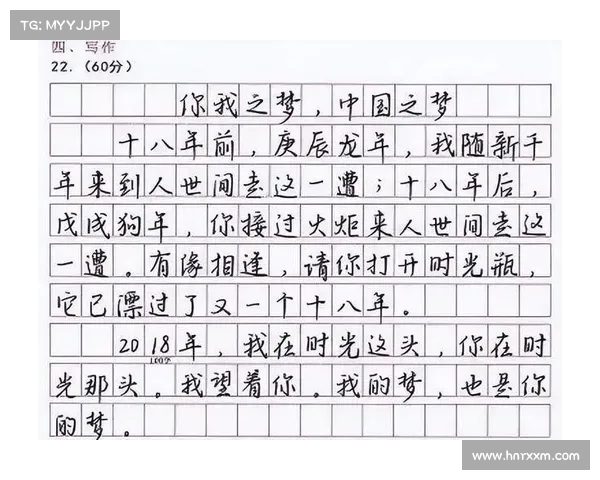 TG: MYYJJPP
四、写作
22.（60分）
你我之梦，中国之梦
十八年前，庚辰龙年，我随新千
年来到人世间走这一遭；十八年后，
戊戌狗年，你接过火炬来人世间走这
一遭。有缘相逢，请你打开时光瓶，
它已漂过了又一个十八年。
2018年，我在时光这头，你在时
100字
光那头。我望着你。我的梦，也是你
的梦。
www.hnrxxm.com